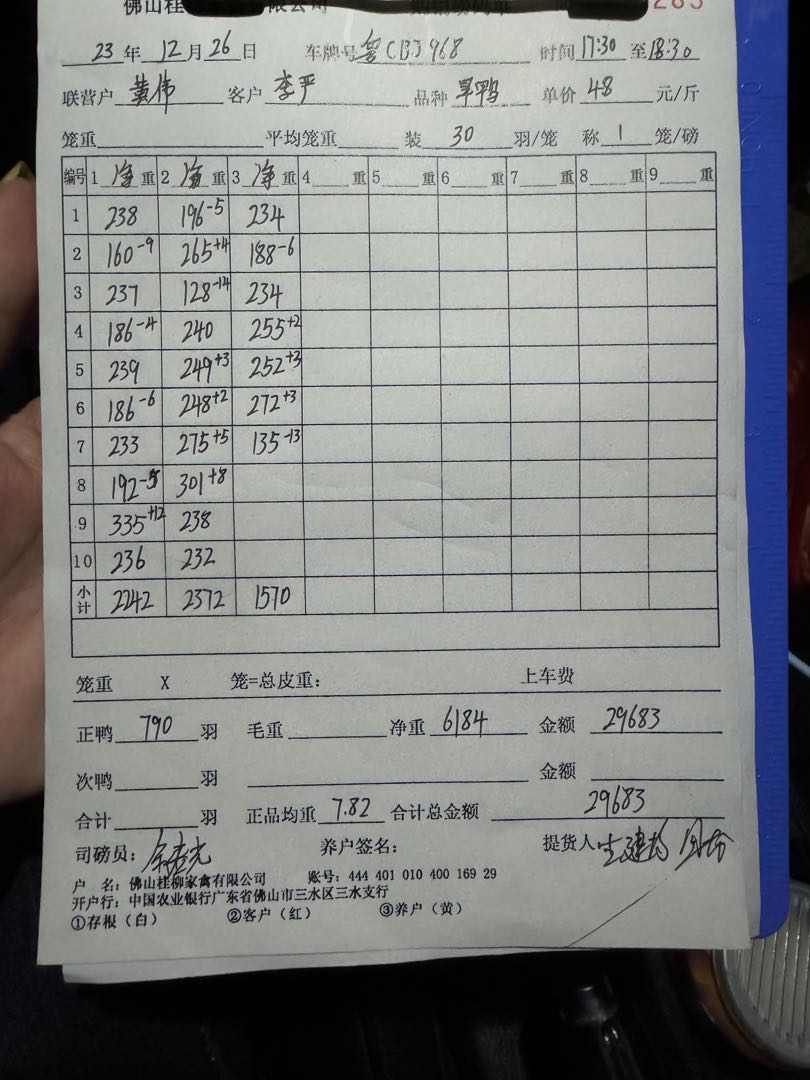 佛山桂 禽有限公司 283
23年12月26日 车牌号 粤CB3968 时间17:30至18:30
联营户 黄伟 客户 李严 品种 旱鸭 单价 48 元/斤
笼重 平均笼重 装 30 羽/笼 称 1 笼/磅
编号 1 净 重 2 净 重 3 净 重 4 重 5 重 6 重 7 重 8 重 9 重
1 238 196-5 234
2 160-9 265+4 188-6
3 237 128-14 234
4 186-4 240 255+2
5 239 249+3 252+3
6 186-6 248+2 272+3
7 233 275+5 135-13
8 192-5 301+8
9 335+12 238
10 236 232
小计 2242 2372 1570
笼重 X 笼=总皮重: 上车费
正鸭 790 羽 毛重 净重 6184 金额 29683
次鸭 羽 金额
合计 羽 正品均重 7.82 合计总金额 29683
司磅员: 养户签名: 提货人
户 名: 佛山桂柳家禽有限公司 账号: 444 401 010 400 169 29
开户行: 中国农业银行广东省佛山市三水区三水支行
①存根(白) ②客户(红) ③养户(黄)